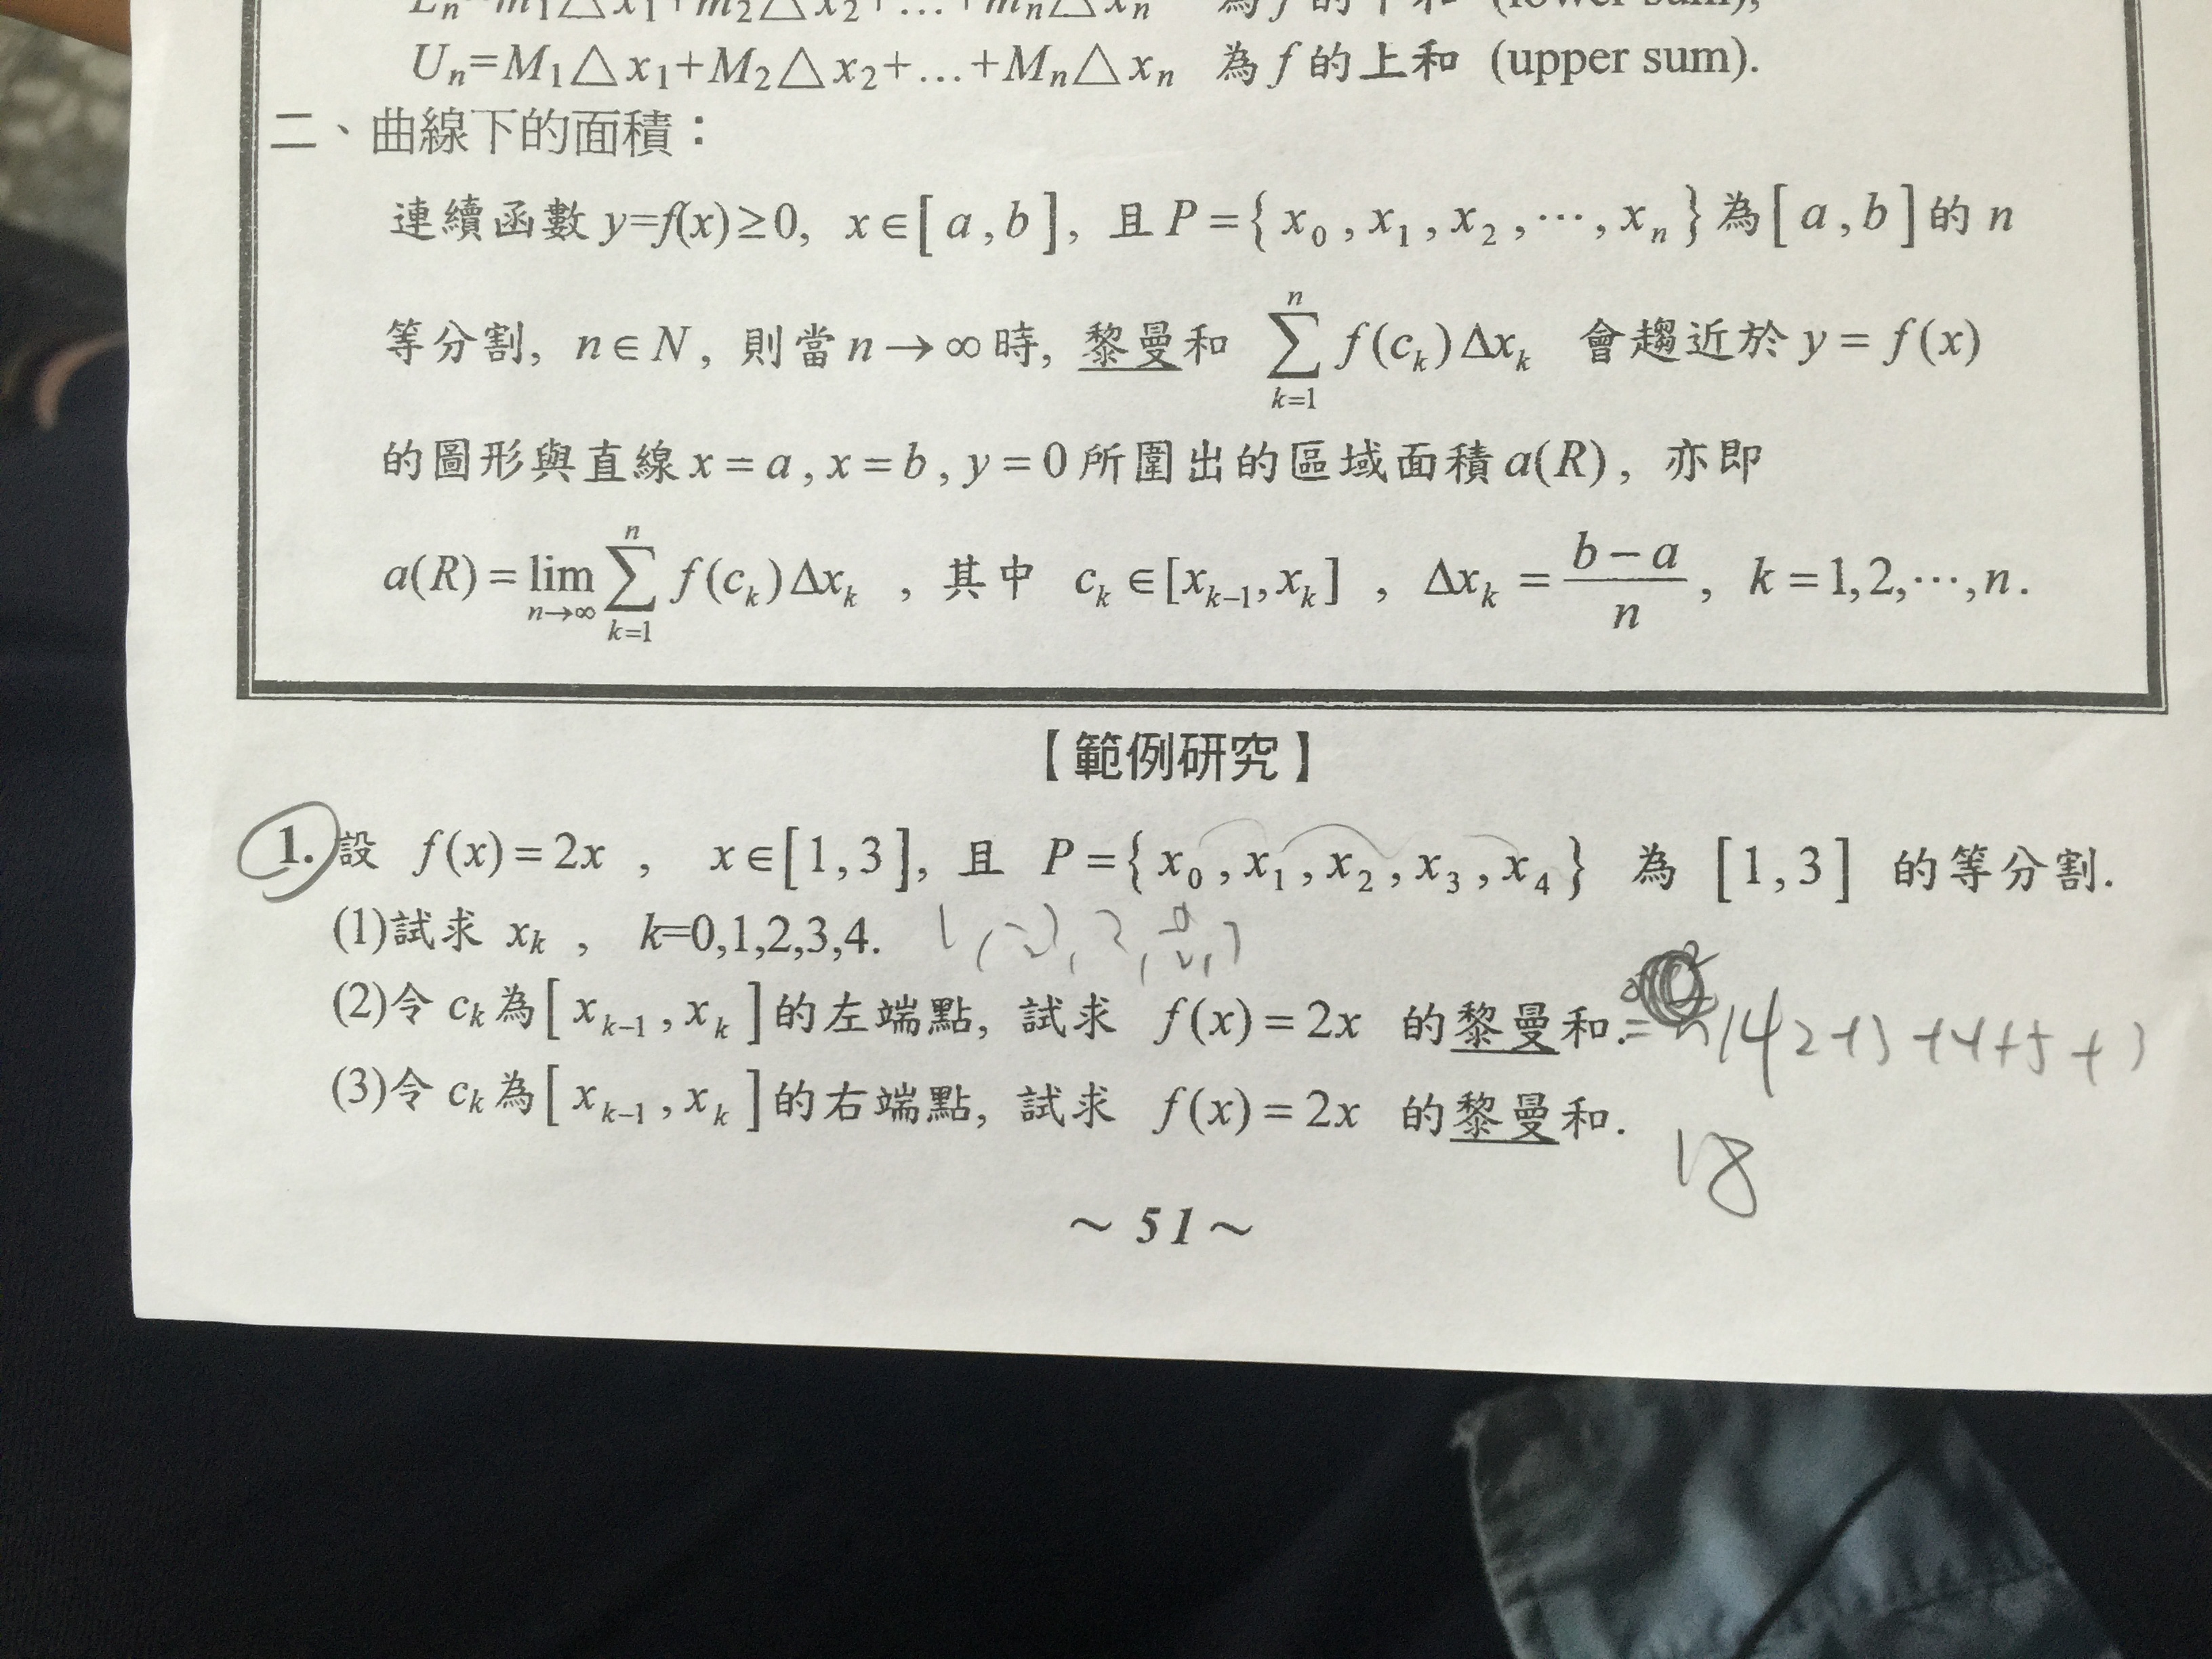 Lₙ=m₁△x₁+m₂△x₂+…+mₙ△xₙ 為 f 的下和 (lower sum),
Uₙ=M₁△x₁+M₂△x₂+…+Mₙ△xₙ 為 f 的上和 (upper sum).
二、曲線下的面積：
連續函數 y=f(x)≥0, x∈[a,b], 且 P={x₀,x₁,x₂,⋯,xₙ}為[a,b]的 n
等分割, n∈N, 則當 n→∞時, 黎曼和 ∑_{k=1}^{n} f(cₖ)Δxₖ 會趨近於 y=f(x)
的圖形與直線 x=a,x=b,y=0 所圍出的區域面積 a(R), 亦即
a(R)=lim_{n→∞} ∑_{k=1}^{n} f(cₖ)Δxₖ , 其中 cₖ∈[xₖ₋₁,xₖ] , Δxₖ=(b−a)/n, k=1,2,⋯,n.
【範例研究】
1. 設 f(x)=2x , x∈[1,3], 且 P={x₀,x₁,x₂,x₃,x₄} 為 [1,3] 的等分割.
(1)試求 xₖ , k=0,1,2,3,4.
(2)令 cₖ為[xₖ₋₁,xₖ]的左端點, 試求 f(x)=2x 的黎曼和. 14 2+3+4+5+
(3)令 cₖ為[xₖ₋₁,xₖ]的右端點, 試求 f(x)=2x 的黎曼和.
18
~51~